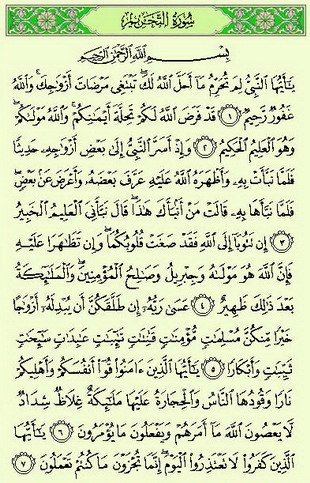 سُورَةُ التَّحْرِيمِ
بِسْمِ اللَّهِ الرَّحْمَٰنِ الرَّحِيمِ
يَٰٓأَيُّهَا النَّبِيُّ لِمَ تُحَرِّمُ مَآ أَحَلَّ اللَّهُ لَكَۖ تَبْتَغِي مَرْضَاتَ أَزْوَٰجِكَۚ وَاللَّهُ
غَفُورٌ رَّحِيمٌ ۝١ قَدْ فَرَضَ اللَّهُ لَكُمْ تَحِلَّةَ أَيْمَٰنِكُمْۚ وَاللَّهُ مَوْلَىٰكُمْۖ
وَهُوَ الْعَلِيمُ الْحَكِيمُ ۝٢ وَإِذْ أَسَرَّ النَّبِيُّ إِلَىٰ بَعْضِ أَزْوَٰجِهِۦ حَدِيثًا
فَلَمَّا نَبَّأَتْ بِهِۦ وَأَظْهَرَهُ اللَّهُ عَلَيْهِ عَرَّفَ بَعْضَهُۥ وَأَعْرَضَ عَنۢ بَعْضٍۖ
فَلَمَّا نَبَّأَهَا بِهِۦ قَالَتْ مَنْ أَنۢبَأَكَ هَٰذَاۖ قَالَ نَبَّأَنِيَ الْعَلِيمُ الْخَبِيرُ
۝٣ إِن تَتُوبَآ إِلَى اللَّهِ فَقَدْ صَغَتْ قُلُوبُكُمَاۖ وَإِن تَظَٰهَرَا عَلَيْهِ
فَإِنَّ اللَّهَ هُوَ مَوْلَىٰهُ وَجِبْرِيلُ وَصَٰلِحُ الْمُؤْمِنِينَۖ وَالْمَلَٰٓئِكَةُ
بَعْدَ ذَٰلِكَ ظَهِيرٌ ۝٤ عَسَىٰ رَبُّهُۥٓ إِن طَلَّقَكُنَّ أَن يُبْدِلَهُۥٓ أَزْوَٰجًا
خَيْرًا مِّنكُنَّ مُسْلِمَٰتٍ مُّؤْمِنَٰتٍ قَٰنِتَٰتٍ تَٰٓئِبَٰتٍ عَٰبِدَٰتٍ سَٰٓئِحَٰتٍ
ثَيِّبَٰتٍ وَأَبْكَارًا ۝٥ يَٰٓأَيُّهَا الَّذِينَ ءَامَنُوا۟ قُوٓا۟ أَنفُسَكُمْ وَأَهْلِيكُمْ
نَارًا وَقُودُهَا النَّاسُ وَالْحِجَارَةُ عَلَيْهَا مَلَٰٓئِكَةٌ غِلَاظٌ شِدَادٌ
لَّا يَعْصُونَ اللَّهَ مَآ أَمَرَهُمْ وَيَفْعَلُونَ مَا يُؤْمَرُونَ ۝٦ يَٰٓأَيُّهَا
الَّذِينَ كَفَرُوا۟ لَا تَعْتَذِرُوا۟ الْيَوْمَۖ إِنَّمَا تُجْزَوْنَ مَا كُنتُمْ تَعْمَلُونَ ۝٧